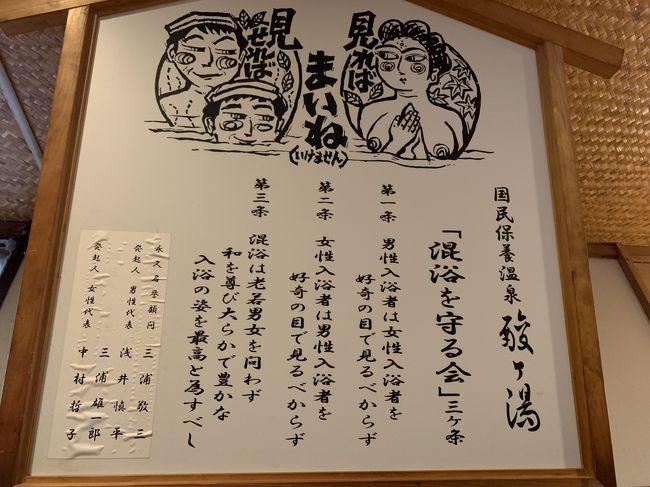 見れば
まいね
(いけません)
見
せれば
国民保養温泉 酸ヶ湯
「混浴を守る会」三ヶ条
第一条 男性入浴者は女性入浴者を
好奇の目で見るべからず
第二条 女性入浴者は男性入浴者を
好奇の目で見るべからず
第三条 混浴は老若男女を問わず
和を尊び大らかで豊かな
入浴の姿を最高と為すべし
永久名誉顧問 三浦敬三
発起人 男性代表 三浦雄一郎
浅井慎平
発起人 女性代表 中村哲子